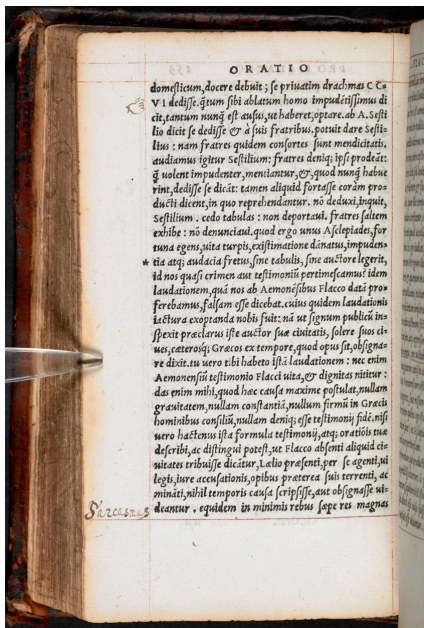 ORATIO
domesticum, docere debuit; se priuatim drachmas CC-
VI dedisse. q̃tum sibi ablatum homo impudẽtissimus di
cit, tantum nunq̃ est ausus, ut haberet, optare. ab A. Sesti
lio dicit se dedisse & à suis fratribus. potuit dare Sesti-
lius: nam fratres quidem consortes sunt mendicitatis.
audiamus igitur Sestilium: fratres deniq; ipsi prodeãt:
q̃ uolent impudenter, mentiantur, &, quod nunq̃ habue
rint, dedisse se dicãt: tamen aliquid fortasse corãm pro-
ducti dicent, in quo reprehendantur. nõ deduxi, inquit,
Sestilium. cedo tabulas: non deportaui. fratres saltem
exhibe: nõ denunciaui. quod ergo unus Asclepiades, for
tuna egens, uita turpis, existimatione dãnatus, impuden-
* tia atq; audacia fretus, sine tabulis, sine auctore iegerit,
id nos quasi crimen aut testimoniũ pertimescamus? idem
laudationem, quã nos ab Aemonẽsibus Flacco datã pro
ferebamus, falsam esse dicebat. cuius quidem laudationis
iactura exoptanda nobis fuit: nã ut signum publicũ in-
spexit præclarus iste auctor suæ ciuitatis, solere suos ci-
ues, cæterosq; Græcos ex tempore, quod opus sit, obsigna-
re dixit. tu uero tibi habeto istã laudationem: nec enim
Aemonensiũ testimonio Flacci uita, & dignitas nititur:
das enim mihi, quod hæc causa maxime postulat, nullam
grauitatem, nullam constantiã, nullum firmũ in Græcis
hominibus consiliũ, nullam deniq; esse testimonij fidẽ. nisi
uero hactenus ista formula testimonij, atq; oratiõis tuæ
describi, ac distingui potest, ut Flacco absenti aliquid ci-
uitates tribuisse dicãtur, Lælio præsenti, per se agenti, ui
legis, iure accusationis, opibus præterea suis terrenti, ac
minãti, nihil temporis causa scripsisse, aut obsignasse ui-
Sarcasmus deantur. equidem in minimis rebus sæpe res magnas